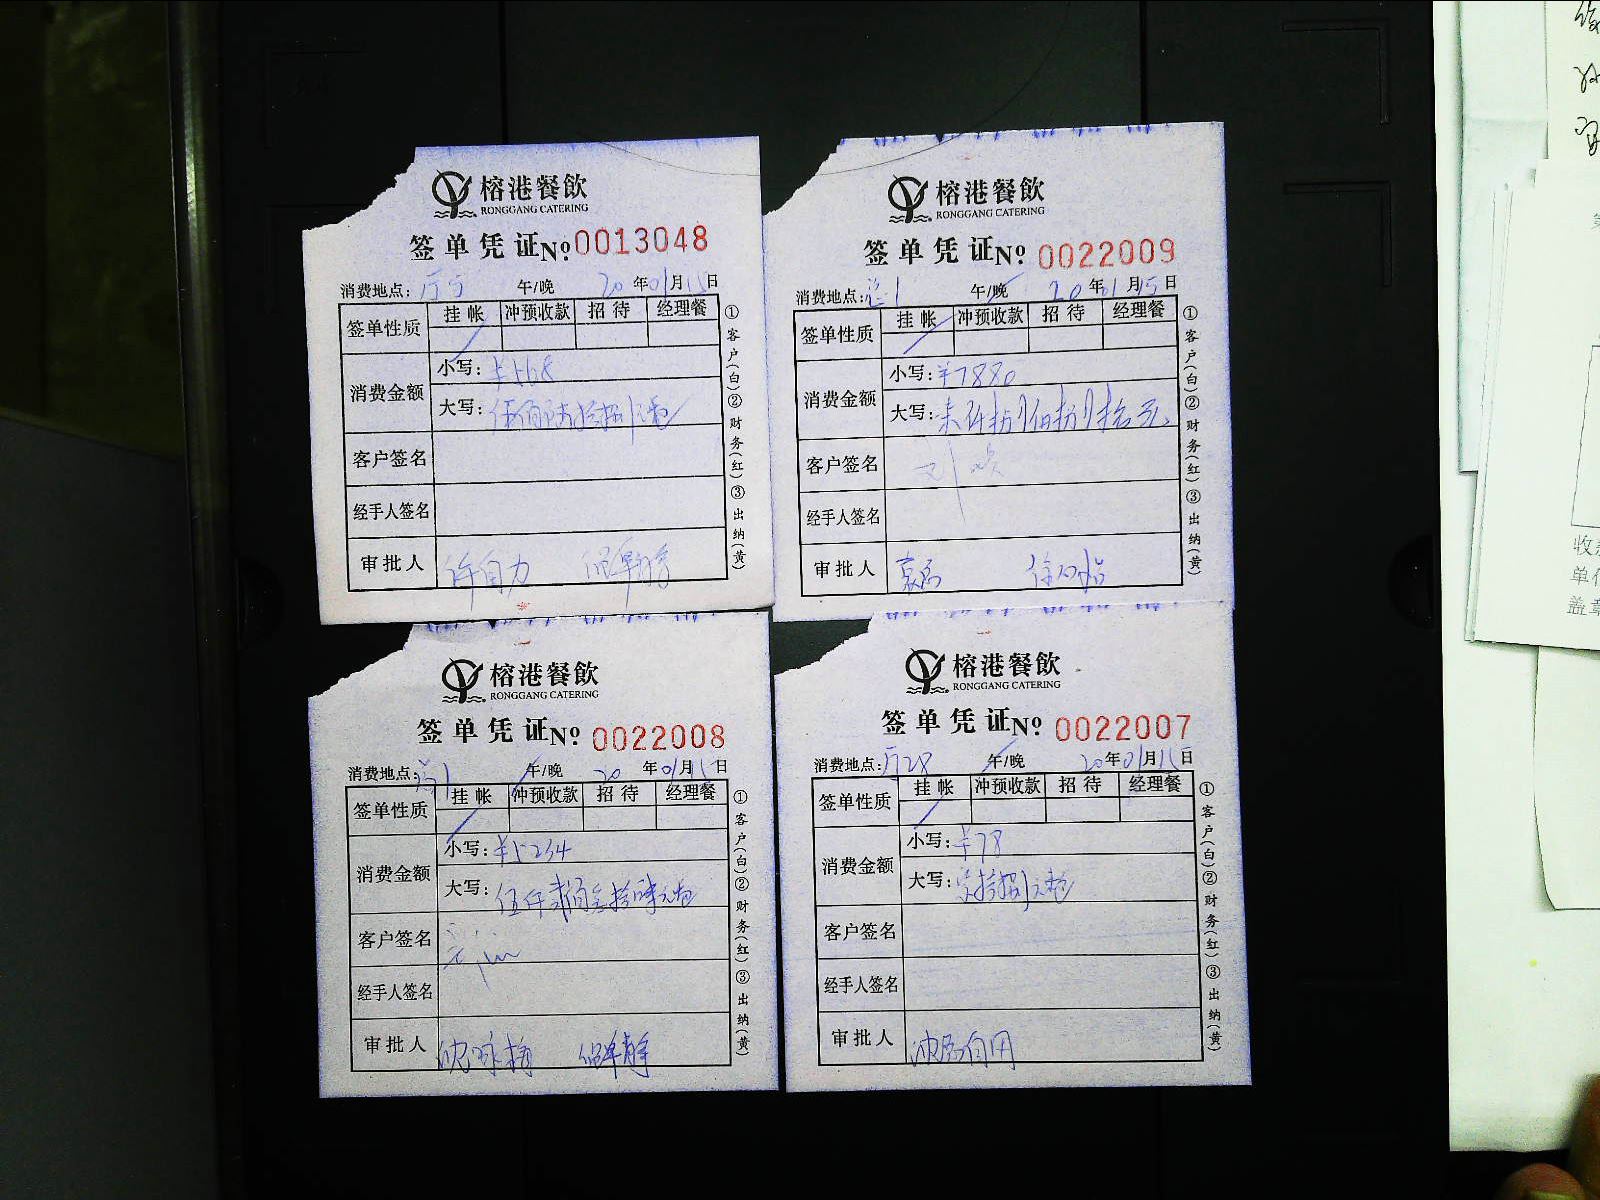 榕港餐飲
RONGGANG CATERING
签单凭证 No 0013048
消费地点: 午/晚 20年01月15日
签单性质 挂帐 冲预收款 招待 经理餐
消费金额 小写: ¥568
大写: 伍佰陆拾捌元整
客户签名
经手人签名
审批人 许自力
①客户(白)②财务(红)③出纳(黄)
榕港餐飲
RONGGANG CATERING
签单凭证 No 0022009
消费地点: 午/晚 20年01月15日
签单性质 挂帐 冲预收款 招待 经理餐
消费金额 小写: ¥7880
大写: 柒仟捌佰捌拾元
客户签名
经手人签名
审批人
①客户(白)②财务(红)③出纳(黄)
榕港餐飲
RONGGANG CATERING
签单凭证 No 0022008
消费地点: 午/晚 20年01月15日
签单性质 挂帐 冲预收款 招待 经理餐
消费金额 小写: ¥5234
大写: 伍仟贰佰叁拾肆元整
客户签名
经手人签名
审批人
①客户(白)②财务(红)③出纳(黄)
榕港餐飲
RONGGANG CATERING
签单凭证 No 0022007
消费地点: 厅28 午/晚 20年01月15日
签单性质 挂帐 冲预收款 招待 经理餐
消费金额 小写: ¥78
大写: 柒拾捌元整
客户签名
经手人签名
审批人
①客户(白)②财务(红)③出纳(黄)